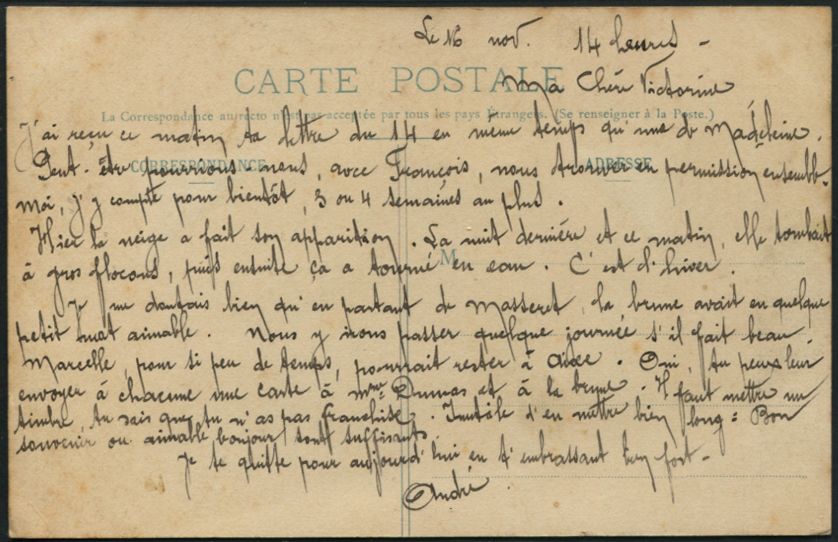 Le 16 nov. 14 heures -
CARTE POSTALE
Ma Chère Victorine
La Correspondance au recto n'est pas acceptée par tous les pays Étrangers. (Se renseigner à la Poste.)
J'ai reçu ce matin ta lettre du 14 en meme temps qu'une de Madeleine.
CORRESPONDANCE
ADRESSE
Peut-être pourrons-nous, avec François, nous trouver en permission ensemble.
Moi, j'y compte pour bientôt, 3 ou 4 semaines au plus.
Hier la neige a fait son apparition. La nuit dernière et ce matin, elle tombait
M
à gros flocons, puis ensuite ça a tourné en eau. C'est l'hiver.
Je me doutais bien qu'en partant de Masseret, la brune avait eu quelque
petit mot aimable. Nous y irons passer quelque journée s'il fait beau.
Marcelle, pour si peu de temps, pourrait rester à Aixe. Oui, tu peux leur
envoyer à chacune une carte à Mme Dumas et à la brune. Il faut mettre un
timbre, tu sais que tu n'as pas franchise. Inutile d'en mettre bien long: Bon
souvenir ou aimable bonjour sont suffisants.
Je te quitte pour aujourd'hui en t'embrassant bien fort -
André